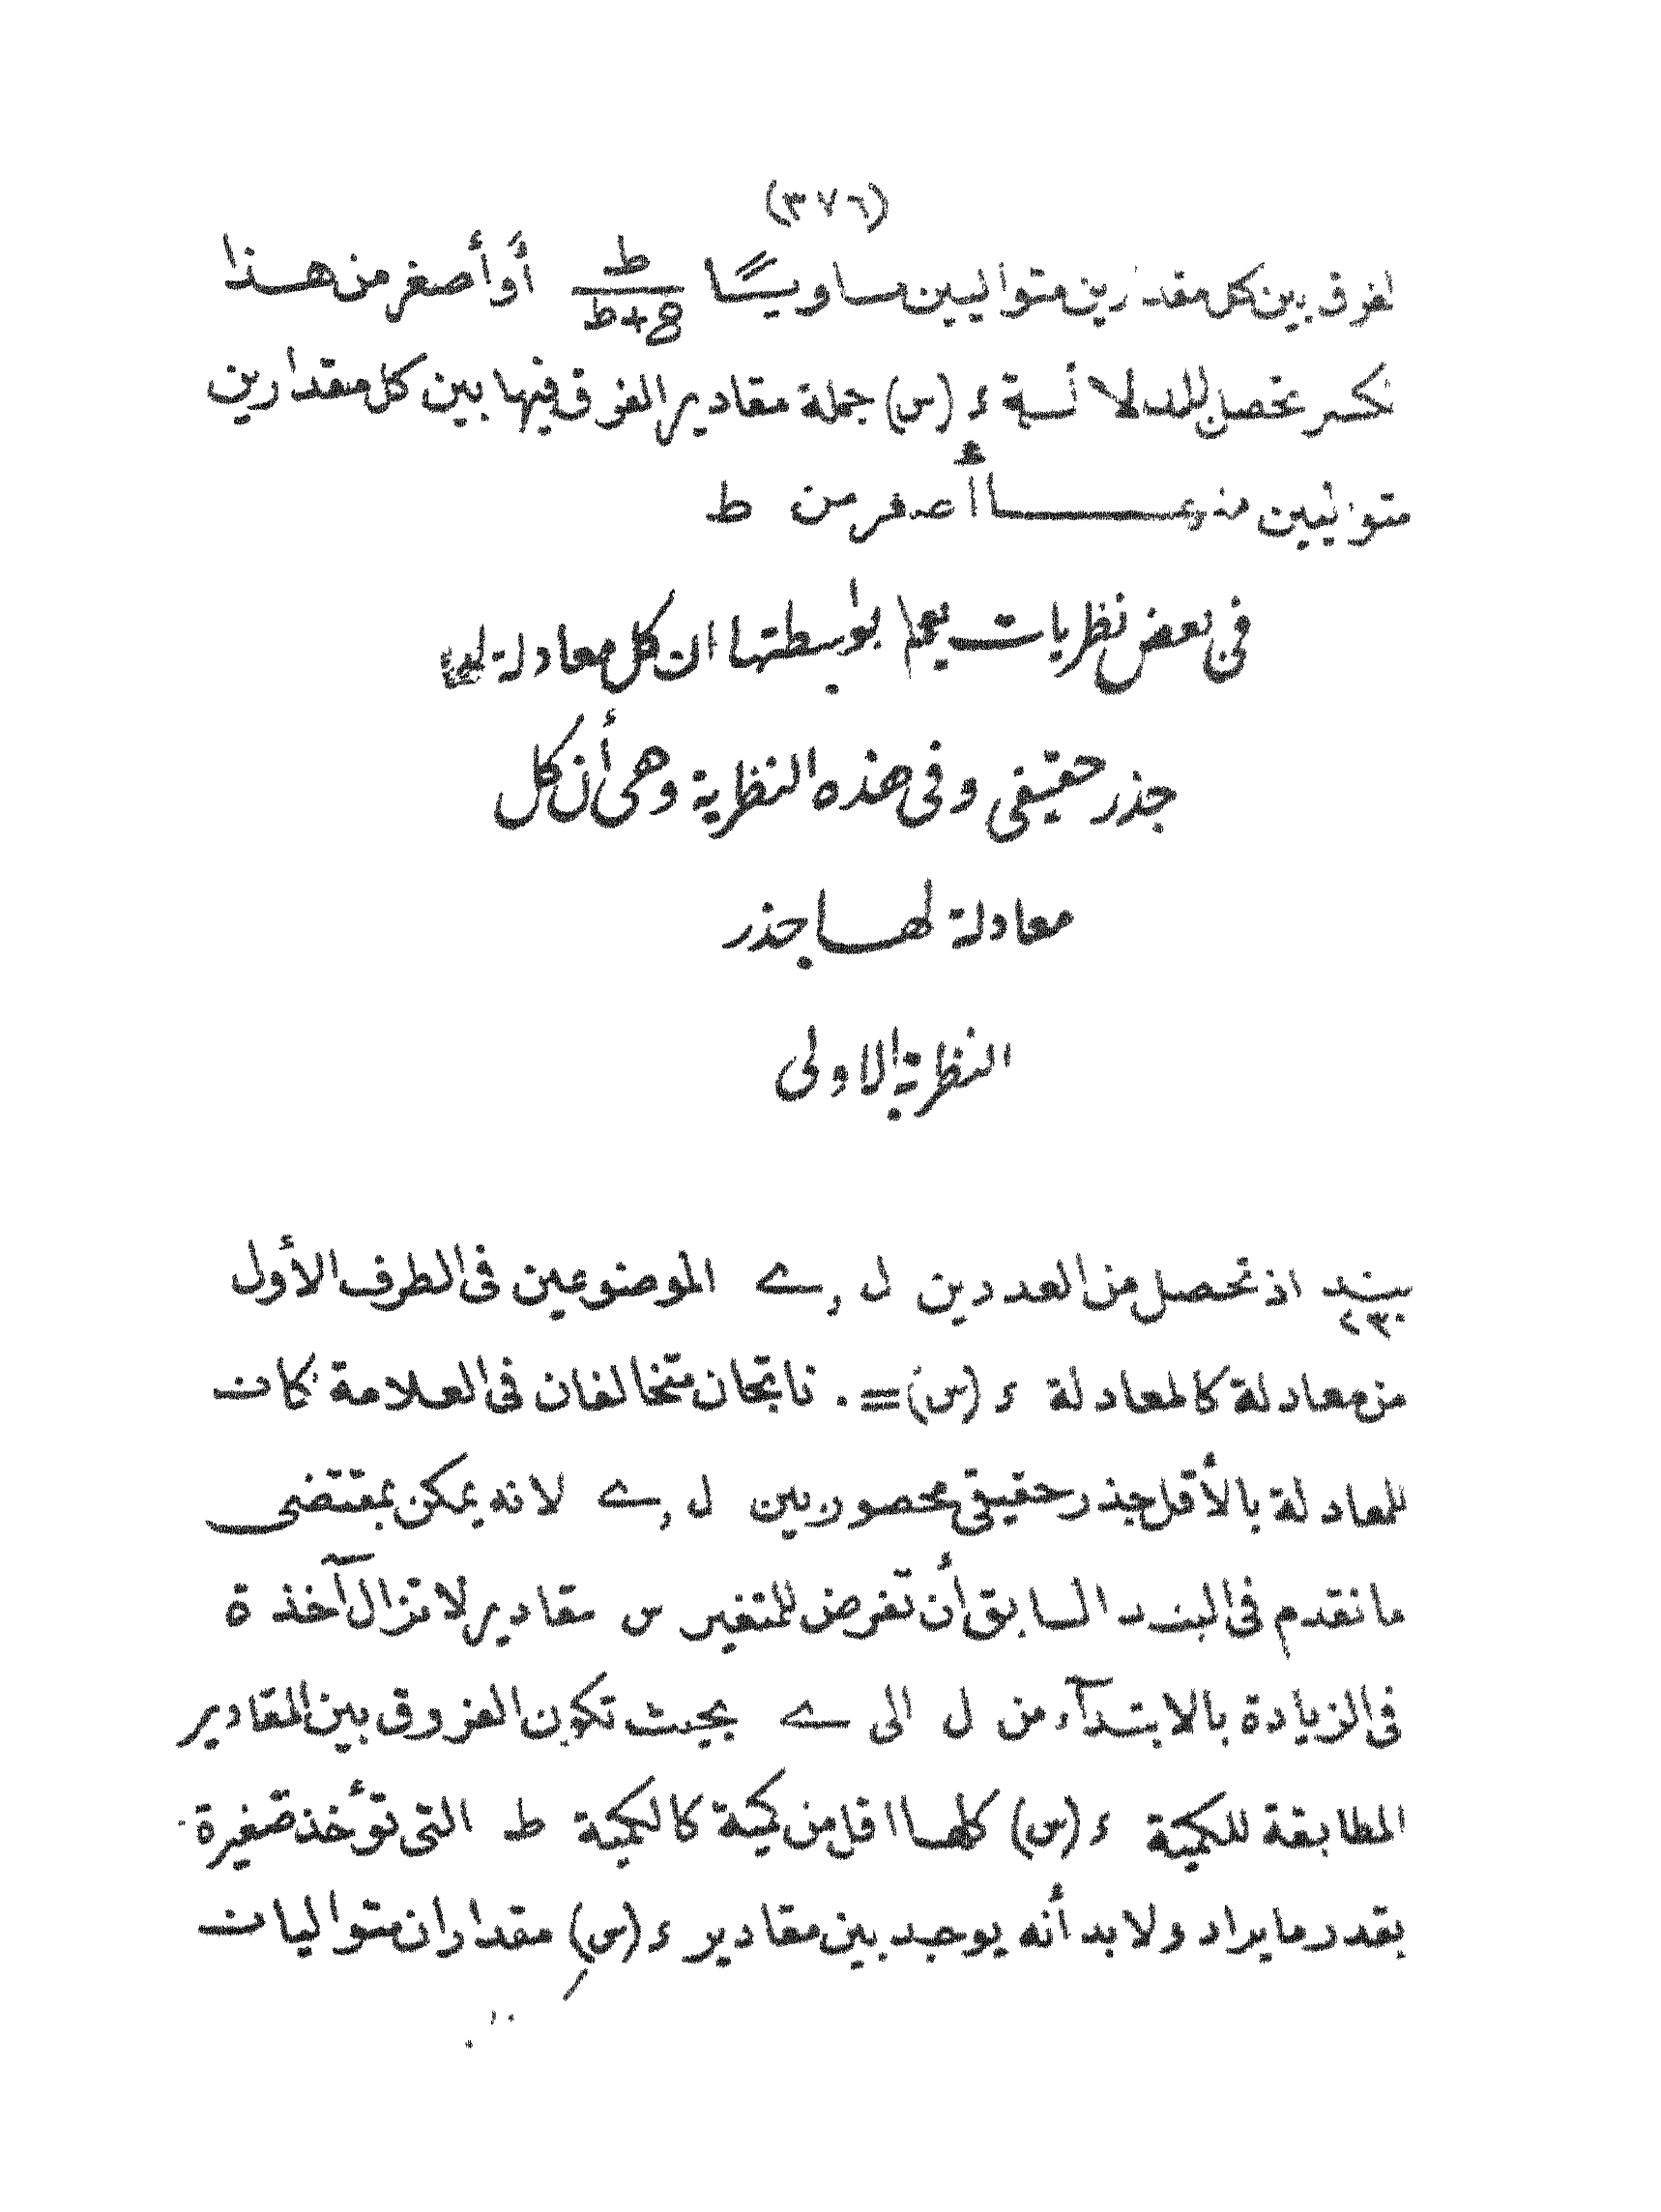 (٣٧٦)
لفرق بين كل مقدارين متواليين مساويـًا ط/(ع+ط) أو أصغر من هـذا
لكسر تحصل للدلالة ء (س) جملة مقادير الفرق فيها بين كل مقدارين
متواليين منهـا أصغر من ط
فى بعض نظريات يعلم بواسطتها ان كل معادلة لها
جذر حقيقى وفى هذه النظرية وهى أن كل
معادلة لهـا جذر
النظرية الاولى
بنـد ٢٣٠ اذ تحصل من العددين ل , ے الموضوعين فى الطرف الأول
من معادلة كالمعادلة ء (س) = ٠ ناتجان متخالفان فى العلامة كان
للمعادلة بالأقل جذر حقيقى محصور بين ل , ے لانه يمكن بمقتضى
ما تقدم فى البنـد السابق أن تفرض للمتغير س مقادير لا تزال آخذة
فى الزيادة بالابتدآء من ل الى ے بحيث تكون الفروق بين المقادير
المطابقة للكمية ء (س) كلها اقل من كمية كالكمية ط التى تؤخذ صغيرة
بقدر ما يراد ولا بد أنه يوجد بين مقادير ء (س) مقداران متواليان